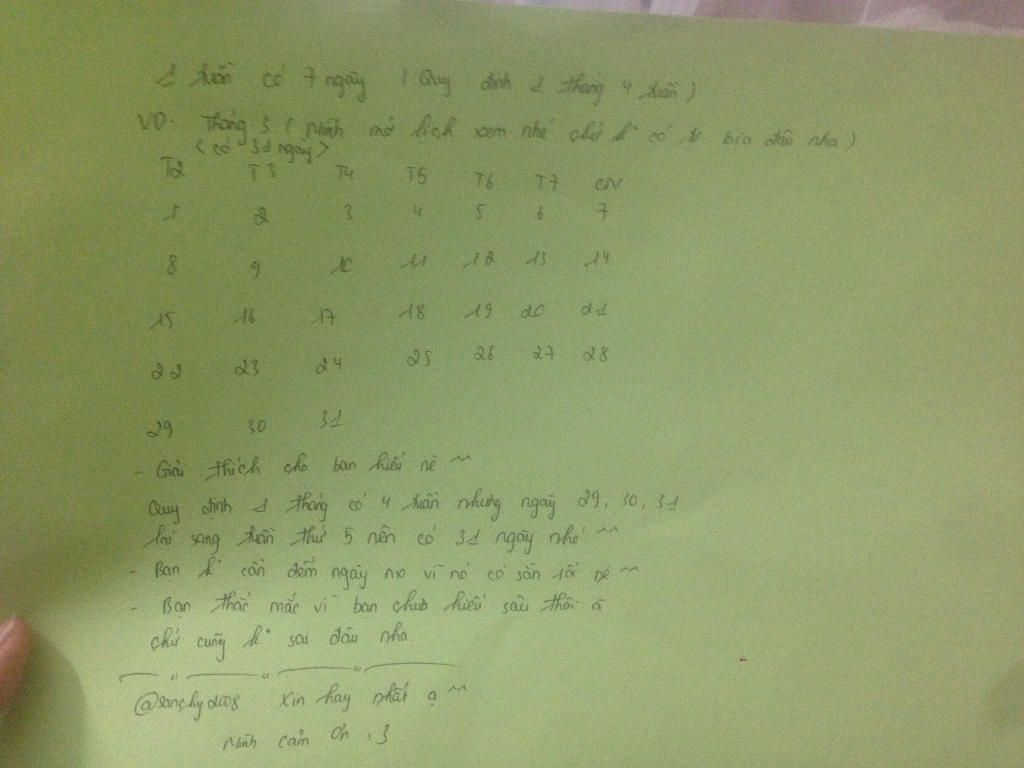 1 tuần có 7 ngày ( Quy định 1 tháng 4 tuần )
VD: Tháng 3 ( Mình mở lịch xem nhé chứ k° có tự bịa đâu nha )
< có 31 ngày >
T2 T3 T4 T5 T6 T7 CN
1 2 3 4 5 6 7
8 9 10 11 12 13 14
15 16 17 18 19 20 21
22 23 24 25 26 27 28
29 30 31
- Giải thích cho bạn hiểu nè ^^
Quy định 1 tháng có 4 tuần nhưng ngày 29, 30, 31
sang tuần thứ 5 nên có 31 ngày nhé ^^
- Bạn k° cần đếm ngày mo vì nó có sẵn rồi nè ^^
- Bạn thắc mắc vì bạn chưa hiểu sâu thôi ã
chứ cũng k° sai đâu nha.
@sanchy2008 Xin hay nhất ạ ^^
Mình cảm ơn :3